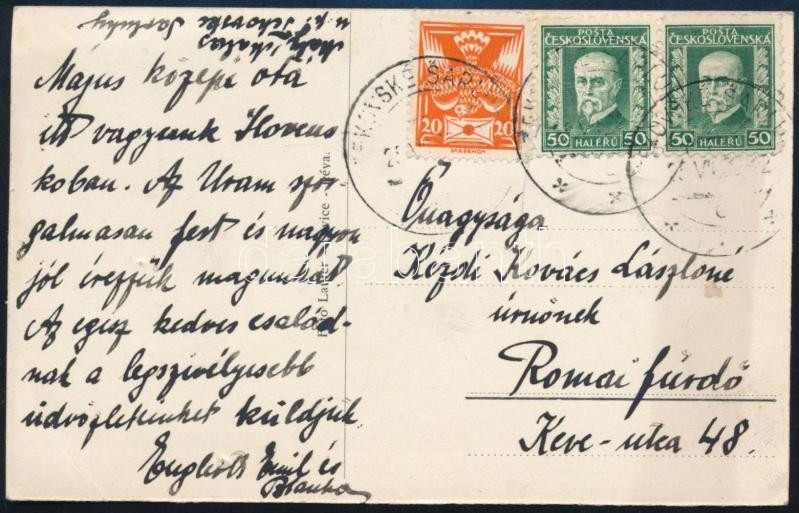 Május közepe óta
itt vagyunk Slovens
koban. Az Uram szor
galmasan fest és nagyon
jól érezzük magunkat
Az egész kedves család-
nak a legszivélyesebb
üdvözleteinket küldjük
Englerth Emil és
Blanka
POSTA
ČESKOSLOVENSKÁ
50 HALÉŘŮ 50
POSTA
ČESKOSLOVENSKÁ
50 HALÉŘŮ 50
20 20
Őnagysága
Kézdi Kovács Lászlóné
úrnőnek
Romai fürdő
Keve-utca 48.
darabanth